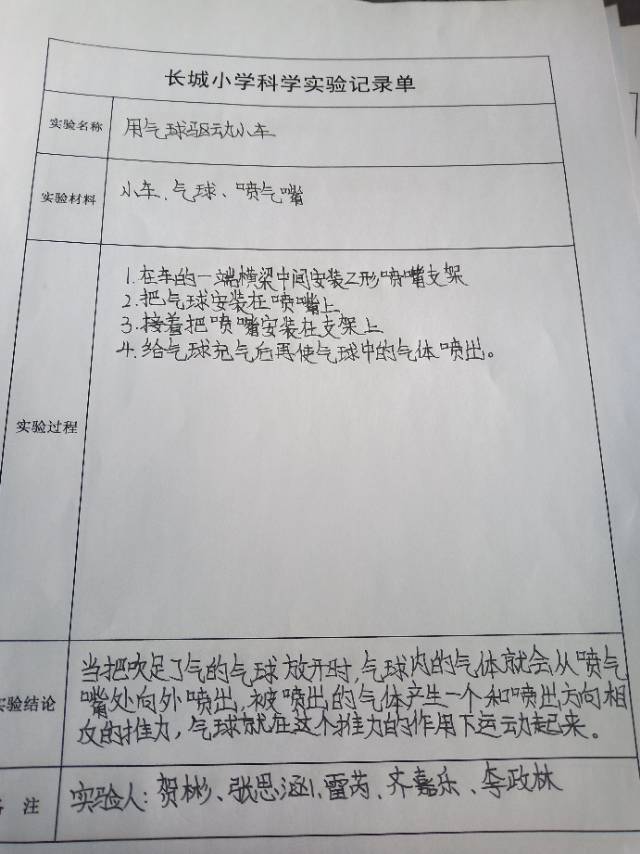 长城小学科学实验记录单
实验名称 用气球驱动小车
实验材料 小车、气球、喷气嘴
实验过程
1.在车的一端横梁中间安装Z形喷嘴支架
2.把气球安装在喷嘴上
3.接着把喷嘴安装在支架上
4.给气球充气后再使气球中的气体喷出。
实验结论
当把吹足了气的气球放开时,气球内的气体就会从喷气
嘴处向外喷出,被喷出的气体产生一个和喷出方向相
反的推力,气球就在这个推力的作用下运动起来。
备注 实验人:贺彬、张思涵、雷芮、齐嘉乐、李政林